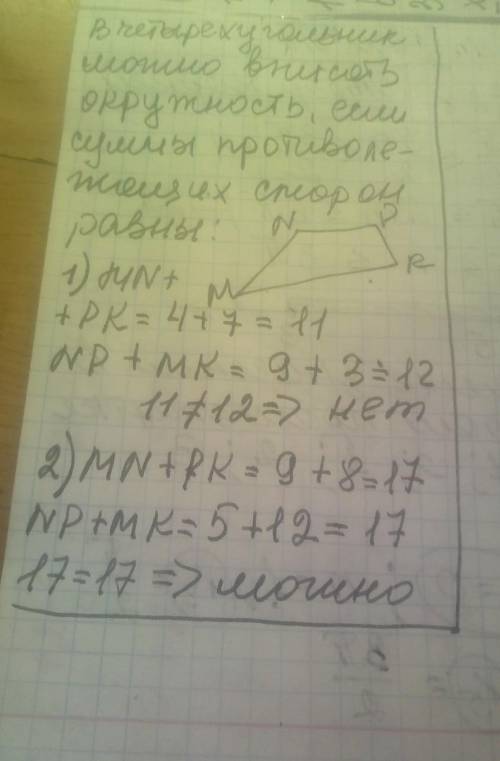 В четырехугольник
можно вписать
окружность, если
суммы противоле-
жащих сторон
равны:
N P
M K
1) MN +
+ PK = 4 + 7 = 11
NP + MK = 9 + 3 = 12
11 ≠ 12 => нет
2) MN + PK = 9 + 8 = 17
NP + MK = 5 + 12 = 17
17 = 17 => можно